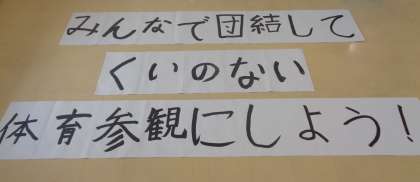 みんなで団結して
くいのない
体育参観にしよう！